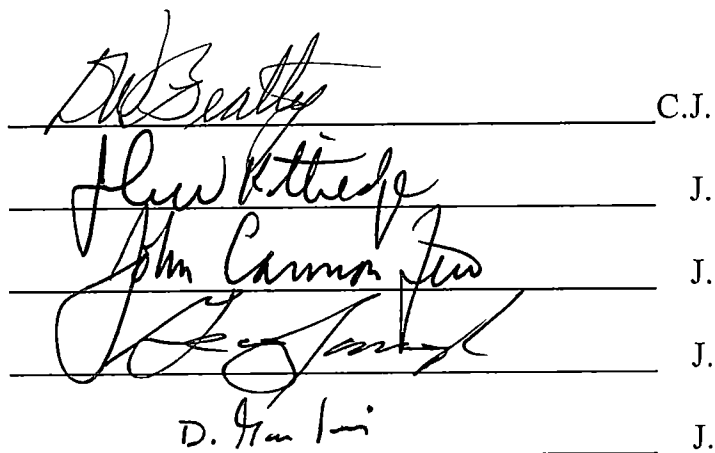 DW Beatty C.J.
John W Kittredge J.
John Cannon Few J.
J.
D. J.